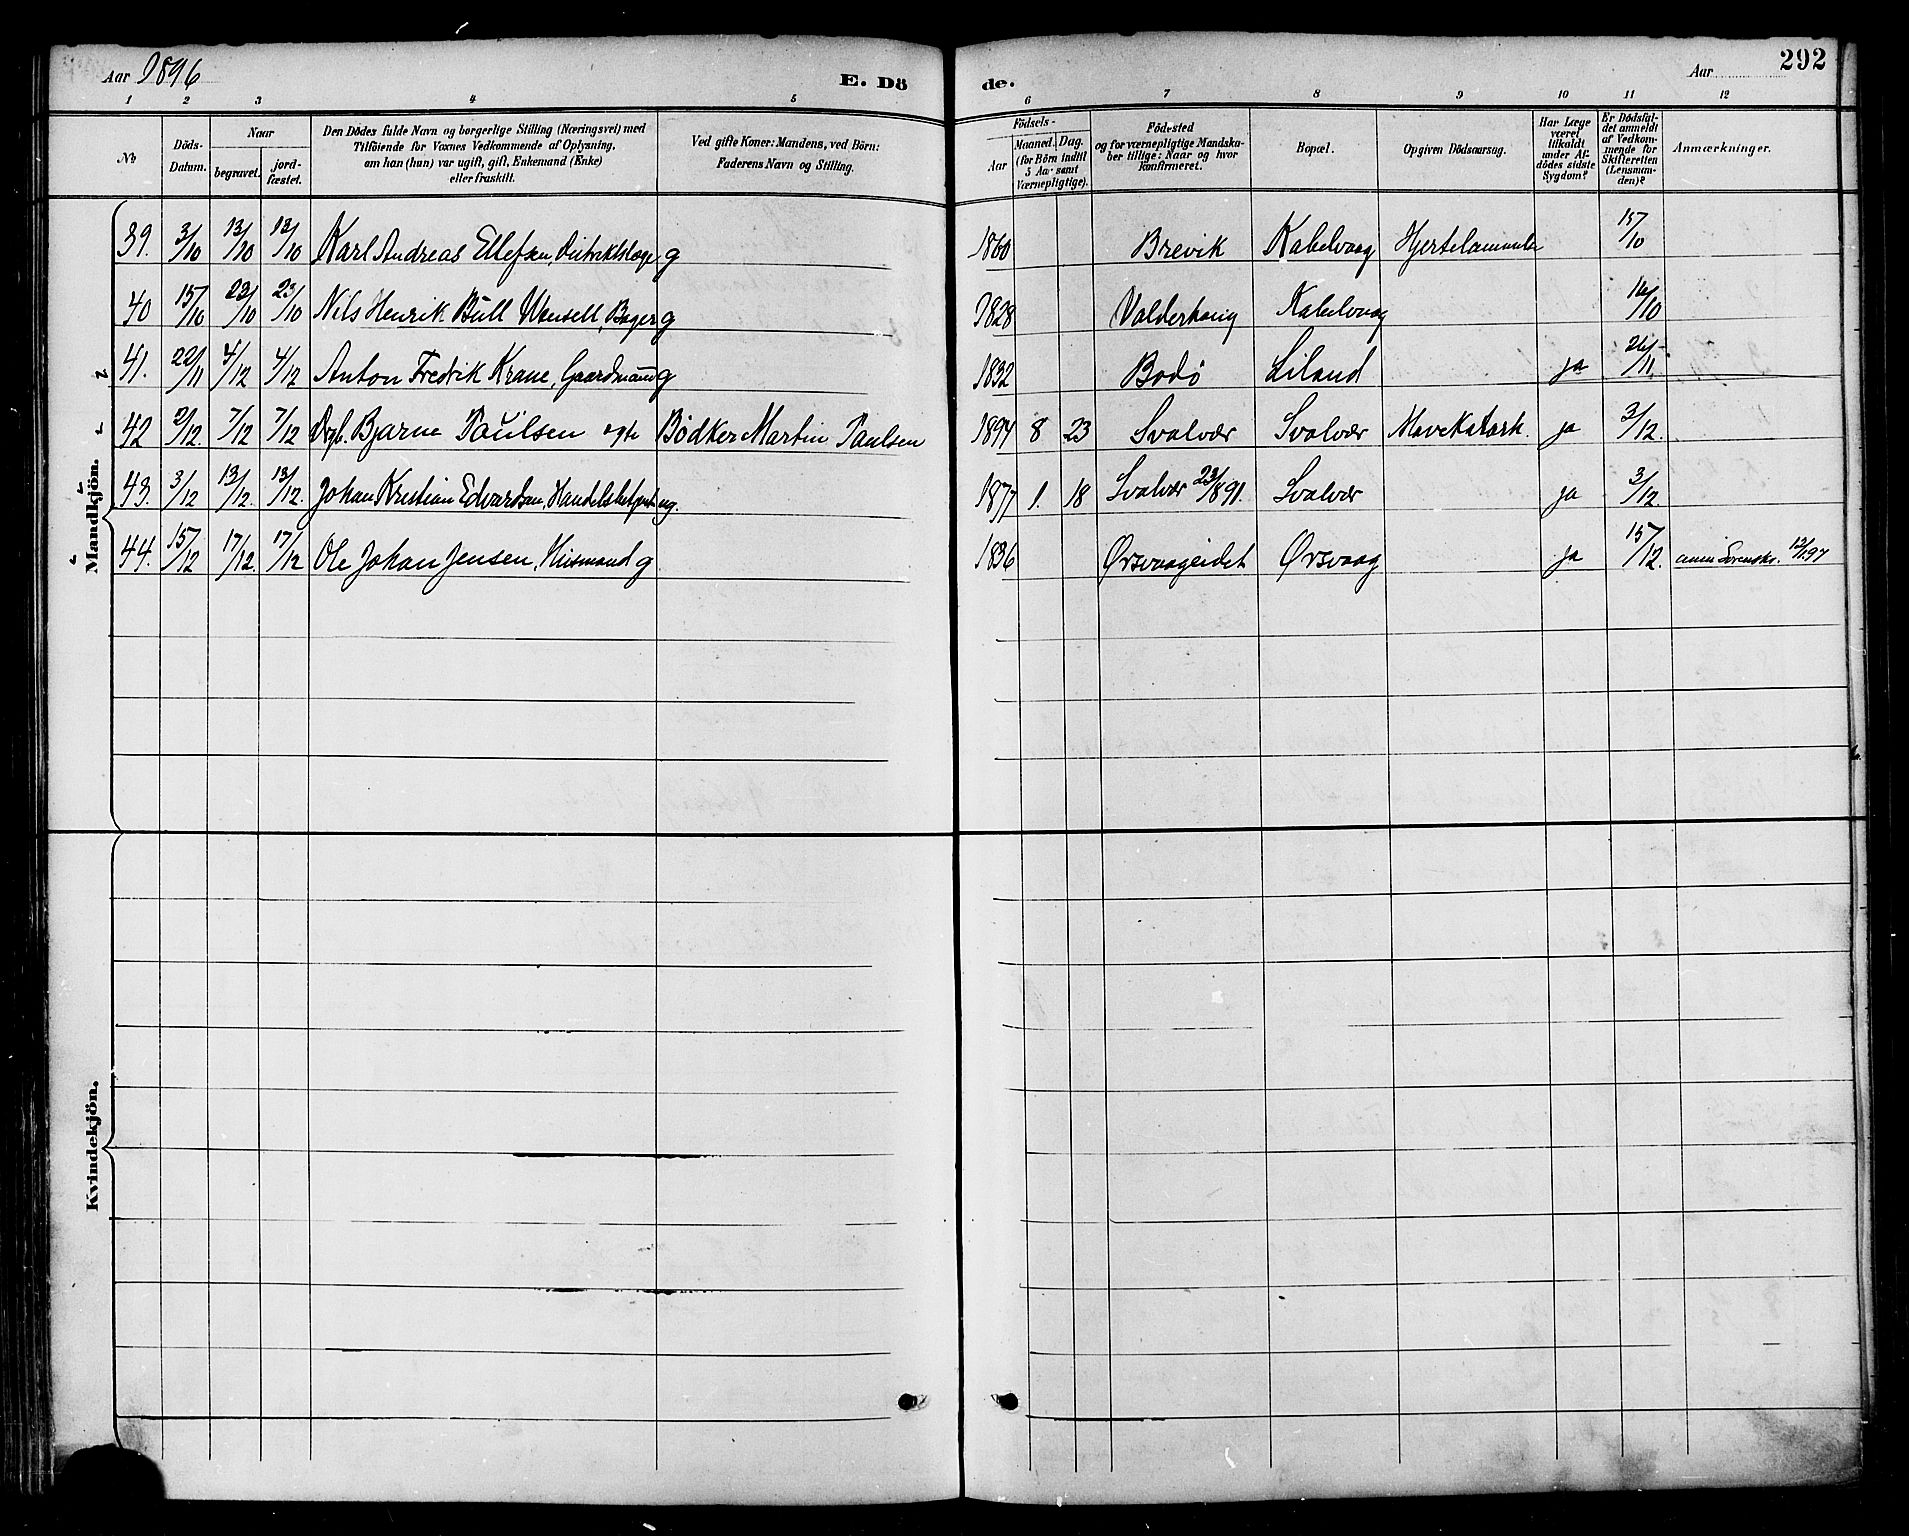 Aar 1896 E. Dö de. Aar 292
1 2 3 4 5 6 7 8 9 10 11 12
No
Döds-Datum.
Naar
begravet.
jord-fæstet.
Den Dødes fulde Navn og borgerlige Stilling (Næringsvei) med
Tilföiende for Voxnes Vedkommende af Oplysning,
om han (hun) var ugift, gift, Enkemand (Enke)
eller fraskilt.
Ved gifte Koner: Mandens, ved Börn:
Faderens Navn og Stilling.
Födsels-
Aar
Maaned. Dag.
(for Börn indtil
5 Aar samt
Værnepligtige).
Födested
og for værnepligtige Mandska-
ber tillige: Naar og hvor
konfirmeret.
Bopæl.
Opgiven Dödsaarsag.
Har Læge
været
tilkaldt
under Af-
dödes sidste
Sygdom?
Er Dödsfal-
det anmeldt
af Vedkom-
mende for
Skifteretten
(Lensman-
den)?
Anmærkninger.
Mandkjön.
39. 3/10 13/10 13/10 Karl Andreas Ellefsen, Distriktslæge g 1860 Brevik Kabelvaag 15/10
40 15/10 23/10 23/10 Nils Henrik Bull Unsell, Bager g 1828 Valderhaug Kabelvaag 16/10
41. 22/11 4/12 4/12 Anton Fredrik Krane, Gaardmand g 1832 Bodö Liland ja 26/11
42 2/12. 7/12 7/12 Drgb. Bjarne Paulsen egte Bødker Martin Paulsen 1894 8 23 Svolvær Svolvær Mavekatarh. ja 3/12.
43. 3/12 13/12. 13/12. Johan Kristian Edvardsen, Handelsbetjent ug. 1877 1. 18 Svolvær 23/8 91. Svolvær ja 3/12.
44. 15/12 17/12. 17/12 Ole Johan Jensen, Husmand g 1836 Ørsvaageidet Ørsvaag ja 15/12. anm Sorensko. 12/1 97
Kvindekjön.